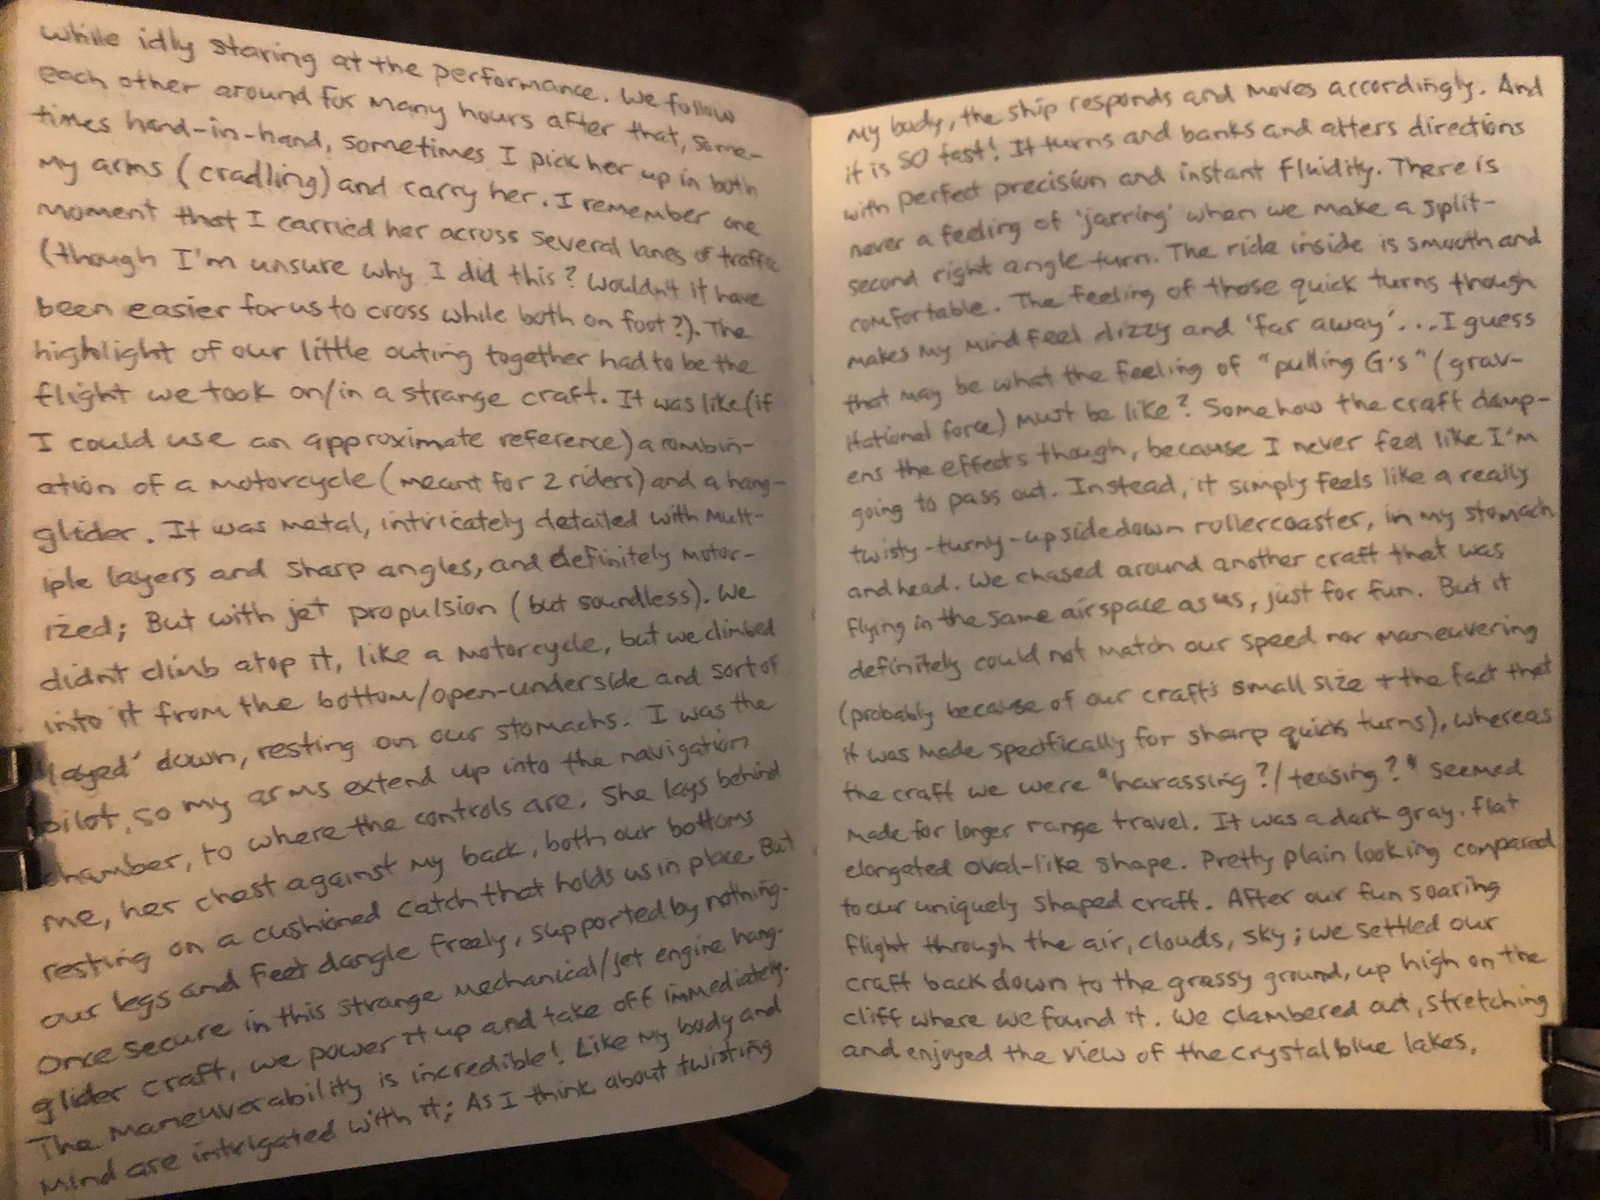 while idly staring at the performance. We follow
each other around for many hours after that, some-
times hand-in-hand, sometimes I pick her up in both
my arms (cradling) and carry her. I remember one
moment that I carried her across several lanes of traffic
(though I'm unsure why I did this? Wouldn't it have
been easier for us to cross while both on foot?). The
highlight of our little outing together had to be the
flight we took on/in a strange craft. It was like (if
I could use an approximate reference) a combin-
ation of a motorcycle (meant for 2 riders) and a hang-
glider. It was metal, intricately detailed with mult-
iple layers and sharp angles, and definitely motor-
ized; But with jet propulsion (but soundless). We
didn't climb atop it, like a motorcycle, but we climbed
into it from the bottom/open-underside and sort of
'layed' down, resting on our stomachs. I was the
pilot, so my arms extend up into the navigation
chamber, to where the controls are. She lays behind
me, her chest against my back, both our bottoms
resting on a cushioned catch that holds us in place. But
our legs and feet dangle freely, supported by nothing.
Once secure in this strange mechanical/jet engine hang-
glider craft, we power it up and take off immediately.
The maneuverability is incredible! Like my body and
mind are intrigated with it; As I think about twisting
my body, the ship responds and moves accordingly. And
it is SO fast! It turns and banks and alters directions
with perfect precision and instant fluidity. There is
never a feeling of 'jarring' when we make a split-
second right angle turn. The ride inside is smooth and
comfortable. The feeling of those quick turns though
makes my mind feel dizzy and 'far away'...I guess
that may be what the feeling of "pulling G's" (grav-
itational force) must be like? Somehow the craft damp-
ens the effects though, because I never feel like I'm
going to pass out. Instead, it simply feels like a really
twisty-turny-upsidedown rollercoaster, in my stomach
and head. We chased around another craft that was
flying in the same airspace as us, just for fun. But it
definitely could not match our speed nor maneuvering
(probably because of our craft's small size + the fact that
it was made specifically for sharp quick turns), whereas
the craft we were "harassing?/teasing?" seemed
made for longer range travel. It was a dark gray, flat
elongated oval-like shape. Pretty plain looking compared
to our uniquely shaped craft. After our fun soaring
flight through the air, clouds, sky; we settled our
craft back down to the grassy ground, up high on the
cliff where we found it. We clambered out, stretching
and enjoyed the view of the crystal blue lakes,